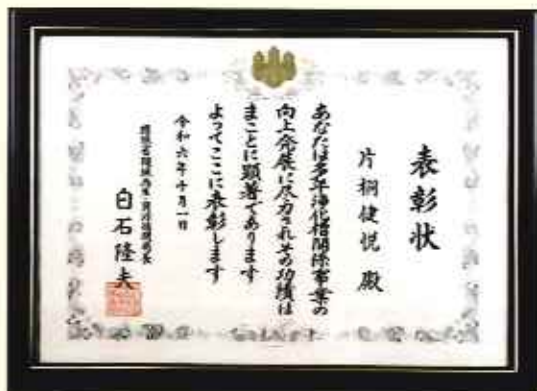 表彰状
片桐健悦 殿
あなたは多年浄化槽関係事業の
向上発展に尽力されその功績は
まことに顕著であります
よってここに表彰します
令和六年十月一日
環境省環境再生・資源循環局長
白石隆夫